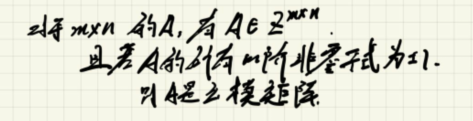 对于m×n的A,若A∈Z^{m×n}.
且若A的所有m阶非零子式为±1.
则A是幺模矩阵.